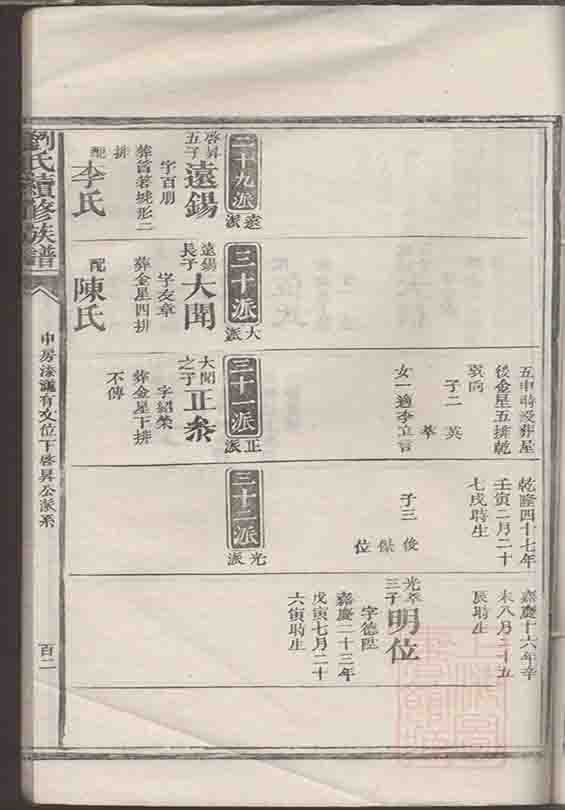 五申時歿葬星
後金星五排乾
巽向
子二 英
萃
女一適李立言
乾隆四十七年
壬寅二月二十
七戌時生
子三 俊
傑
位
嘉慶十六年辛
未八月二十五
辰時生
二十九派
遠派
啓昇五子
遠錫
字百朋
排
配李氏
三十派
大派
遠錫長子
大聞
字友章
葬金星四排
配陳氏
三十一派
正派
大聞之子
正燊
字紹榮
葬金星十排
不傳
三十二派
光派
光萃三子
明位
字德陞
嘉慶二十三年
戊寅七月二十
六寅時生
劉氏續修族譜
申房溱滙有文位下啓昇公派系
百二